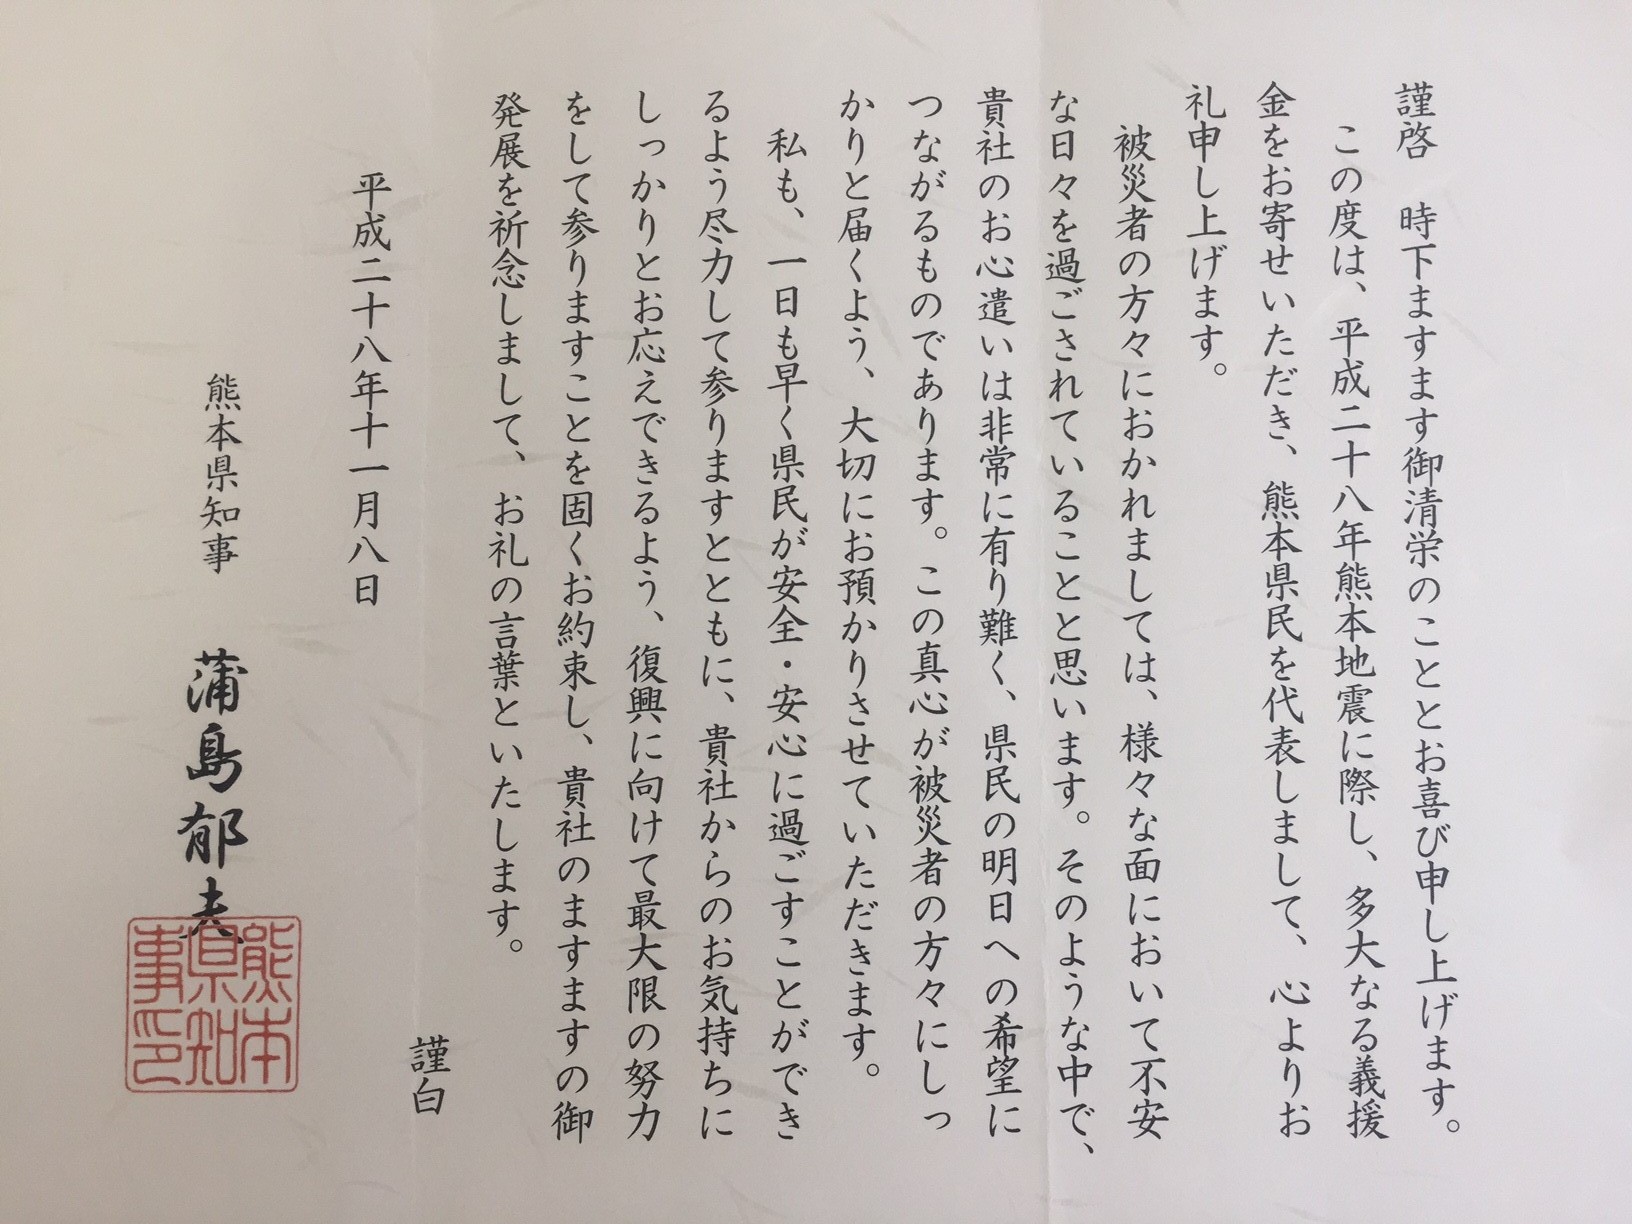 謹啓　時下ますます御清栄のこととお喜び申し上げます。
この度は、平成二十八年熊本地震に際し、多大なる義援
金をお寄せいただき、熊本県民を代表しまして、心よりお
礼申し上げます。
被災者の方々におかれましては、様々な面において不安
な日々を過ごされていることと思います。そのような中で、
貴社のお心遣いは非常に有り難く、県民の明日への希望に
つながるものであります。この真心が被災者の方々にしっ
かりと届くよう、大切にお預かりさせていただきます。
私も、一日も早く県民が安全・安心に過ごすことができ
るよう尽力して参りますとともに、貴社からのお気持ちに
しっかりとお応えできるよう、復興に向けて最大限の努力
をして参りますことを固くお約束し、貴社のますますの御
発展を祈念しまして、お礼の言葉といたします。
謹白
平成二十八年十一月八日
熊本県知事　蒲島郁夫
熊本
県知
事印